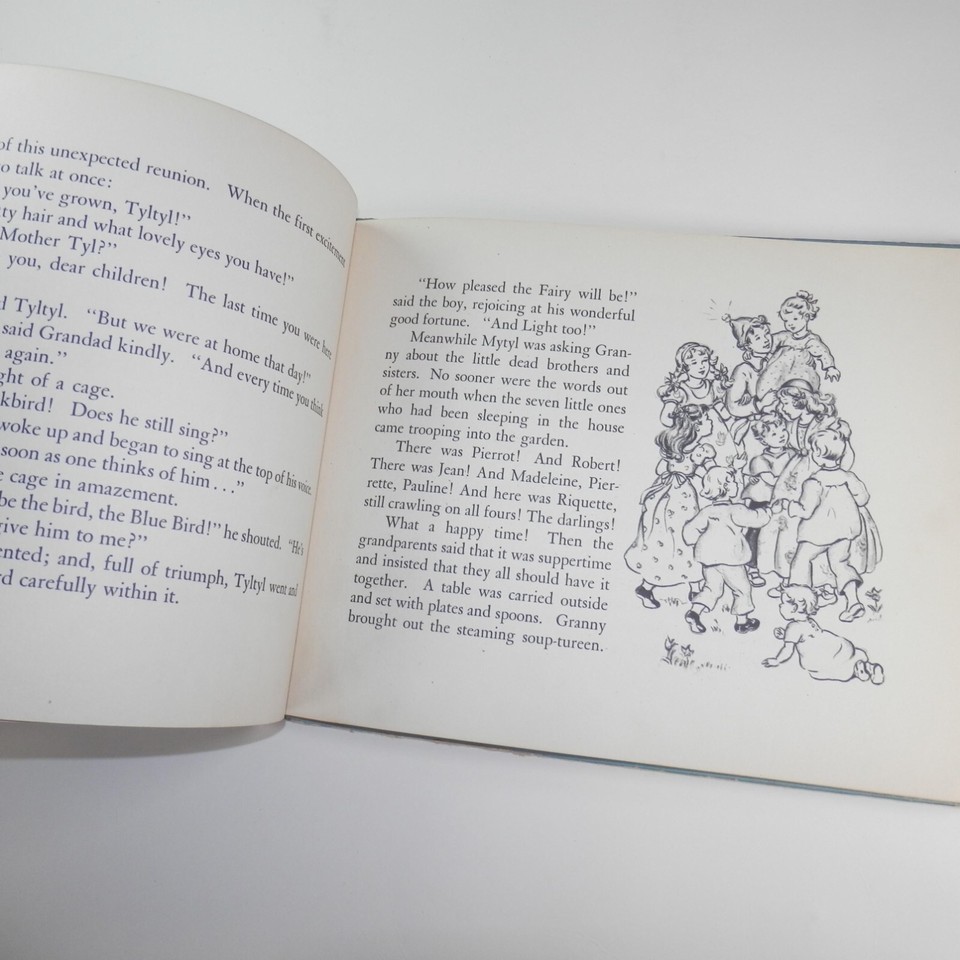 of this unexpected reunion. When the first excitement
to talk at once:
you've grown, Tyltyl!"
tty hair and what lovely eyes you have!"
Mother Tyl?"
you, dear children! The last time you were here
d Tyltyl. "But we were at home that day!"
said Grandad kindly. "And every time you think
again."
ght of a cage.
kbird! Does he still sing?"
woke up and began to sing at the top of his voice.
soon as one thinks of him..."
e cage in amazement.
be the bird, the Blue Bird!" he shouted. "He's
give him to me?"
ented; and, full of triumph, Tyltyl went and
rd carefully within it.
"How pleased the Fairy will be!"
said the boy, rejoicing at his wonderful
good fortune. "And Light too!"
Meanwhile Mytyl was asking Gran-
ny about the little dead brothers and
sisters. No sooner were the words out
of her mouth when the seven little ones
who had been sleeping in the house
came trooping into the garden.
There was Pierrot! And Robert!
There was Jean! And Madeleine, Pier-
rette, Pauline! And here was Riquette,
still crawling on all fours! The darlings!
What a happy time! Then the
grandparents said that it was suppertime
and insisted that they all should have it
together. A table was carried outside
and set with plates and spoons. Granny
brought out the steaming soup-tureen.